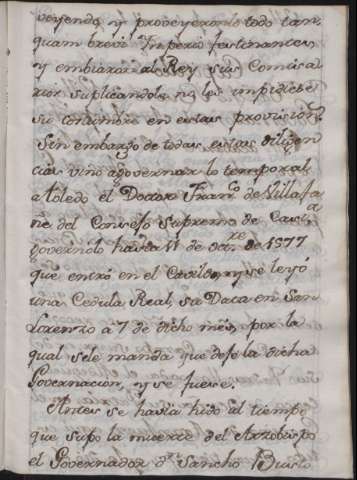 veyendo, y proveyeron de todo tan
quam brevi Imperio festinantes,
y embiaron al Rey sus Comisa
rios suplicandole no les impidiese
su costumbre en estas provision.s
Sin embargo de todas estas diligen
cias vino a governar lo temporal
a toledo el Doctor Fran.co de Villafa
ñe del Consejo Supremo de Casti.a
governolo hasta 11 de oct.re de 1577
que entró en el Cavildo, y se leyó
una Cedula Real, su Data en San
Lorenzo a 7 de dicho mes, por la
qual se le manda que deje la dicha
Governacion, y se fuese.
Antes se havia hido al tiempo
que supo la muerte del Arzobispo
el Governador d.n Sancho Busto